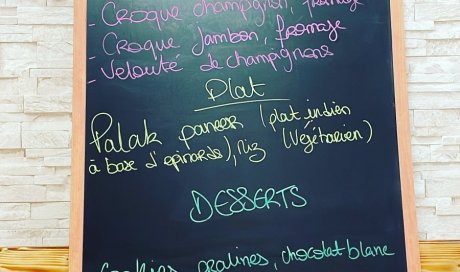 - Croque champignon, fromage
- Croque Jambon, fromage
- Velouté de champignons
Plat
Palak paneer (plat indien
à base d'épinards), riz (Végétarien)
DESSERTS
Cookies pralines, chocolat blanc